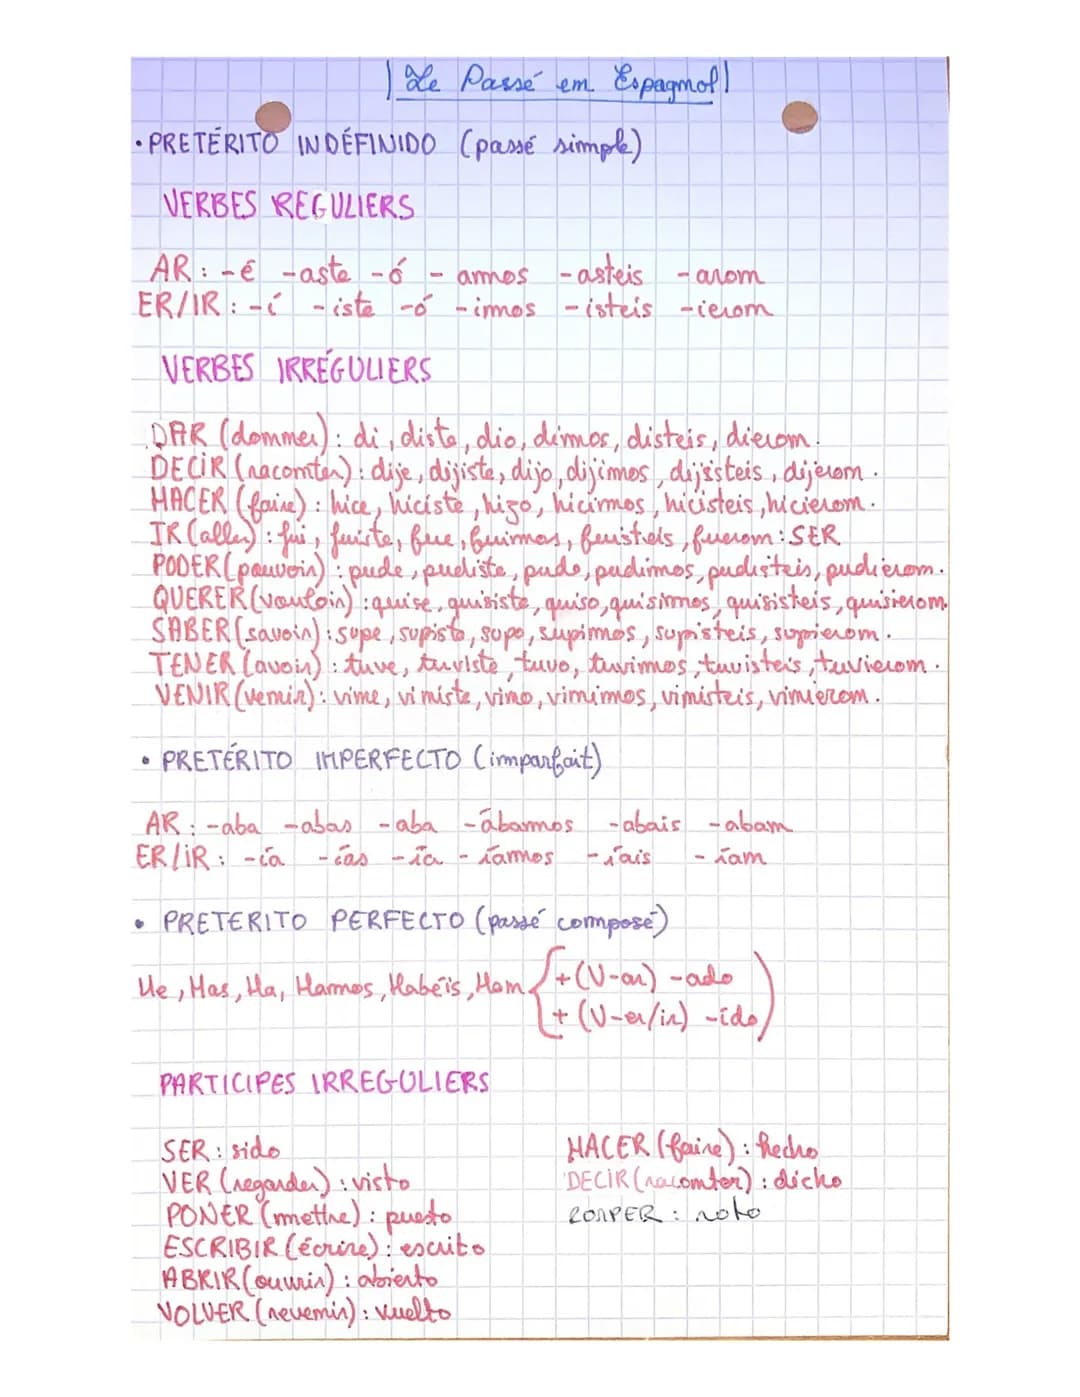 Le Passé en Espagnol
• PRETÉRITO INDÉFINIDO (passé simple)
VERBES REGULIERS
AR : -é -aste -ó -amos -asteis -aron
ER/IR : -í -iste -ó -imos -isteis -ieron
VERBES IRRÉGULIERS
DAR (donner) : di, diste, dio, dimos, disteis, dieron.
DECIR (raconter) : dije, dijiste, dijo, dijimos, dijisteis, dijeron.
HACER (faire) : hice, hiciste, hizo, hicimos, hicisteis, hicieron.
IR (aller) : fui, fuiste, fue, fuimos, fuisteis, fueron : SER
PODER (pouvoir) : pude, pudiste, pudo, pudimos, pudisteis, pudieron.
QUERER (vouloir) : quise, quisiste, quiso, quisimos, quisisteis, quisieron.
SABER (savoir) : supe, supisto, supo, supimos, supisteis, supieron.
TENER (avoir) : tuve, tuviste, tuvo, tuvimos, tuvisteis, tuvieron.
VENIR (venir) : vine, viniste, vino, vinimos, vinisteis, vinieron.
• PRETÉRITO IMPERFECTO (imparfait)
AR : -aba -abas -aba -ábamos -abais -aban
ER/IR : -ía -ías -ía -íamos -íais -ían
• PRETERITO PERFECTO (passé composé)
He, Has, Ha, Hamos, Habéis, Han { +(V-ar) -ado
+ (V-er/ir) -ido )
PARTICIPES IRREGULIERS
SER : sido
VER (regarder) : visto
PONER (mettre) : puesto
ESCRIBIR (écrire) : escrito
ABRIR (ouvrir) : abierto
VOLVER (revenir) : vuelto
HACER (faire) : hecho
DECIR (raconter) : dicho
ROMPER : roto